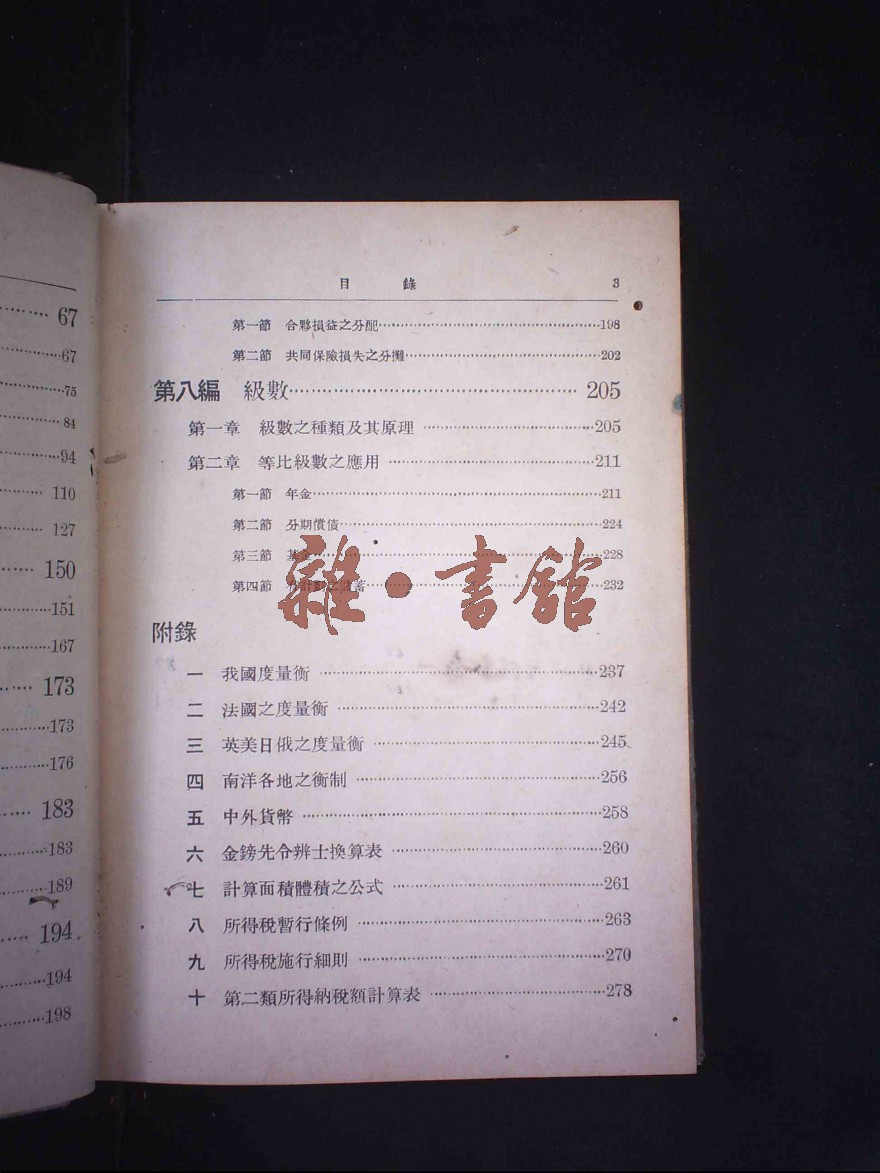 67
67
75
84
94
110
127
150
151
167
173
173
176
183
183
189
194
194
198
目錄 3
第一節 合夥損益之分配 198
第二節 共同保險損失之分攤 202
第八編 級數 205
第一章 級數之種類及其原理 205
第二章 等比級數之應用 211
第一節 年金 211
第二節 分期償債 224
第三節 基金 228
第四節 之儲蓄 232
雜·書館
附錄
一 我國度量衡 237
二 法國之度量衡 242
三 英美日俄之度量衡 245
四 南洋各地之衡制 256
五 中外貨幣 258
六 金鎊先令辨士換算表 260
七 計算面積體積之公式 261
八 所得稅暫行條例 263
九 所得稅施行細則 270
十 第二類所得納稅額計算表 278